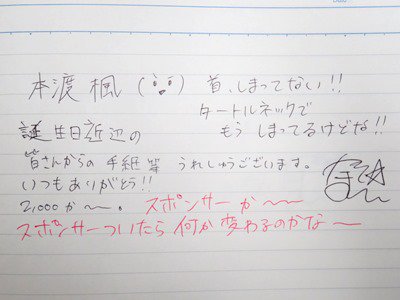 本渡 楓 (˙▽˙) 首、しまってない!!
タートルネックで
もう しまってるけどな!!
誕生日近辺の
皆さんからの 手紙等 うれしゅうございます。
いつもありがとう!!
2,000か〜。 スポンサーか〜〜
スポンサーついたら 何か変わるのかな〜